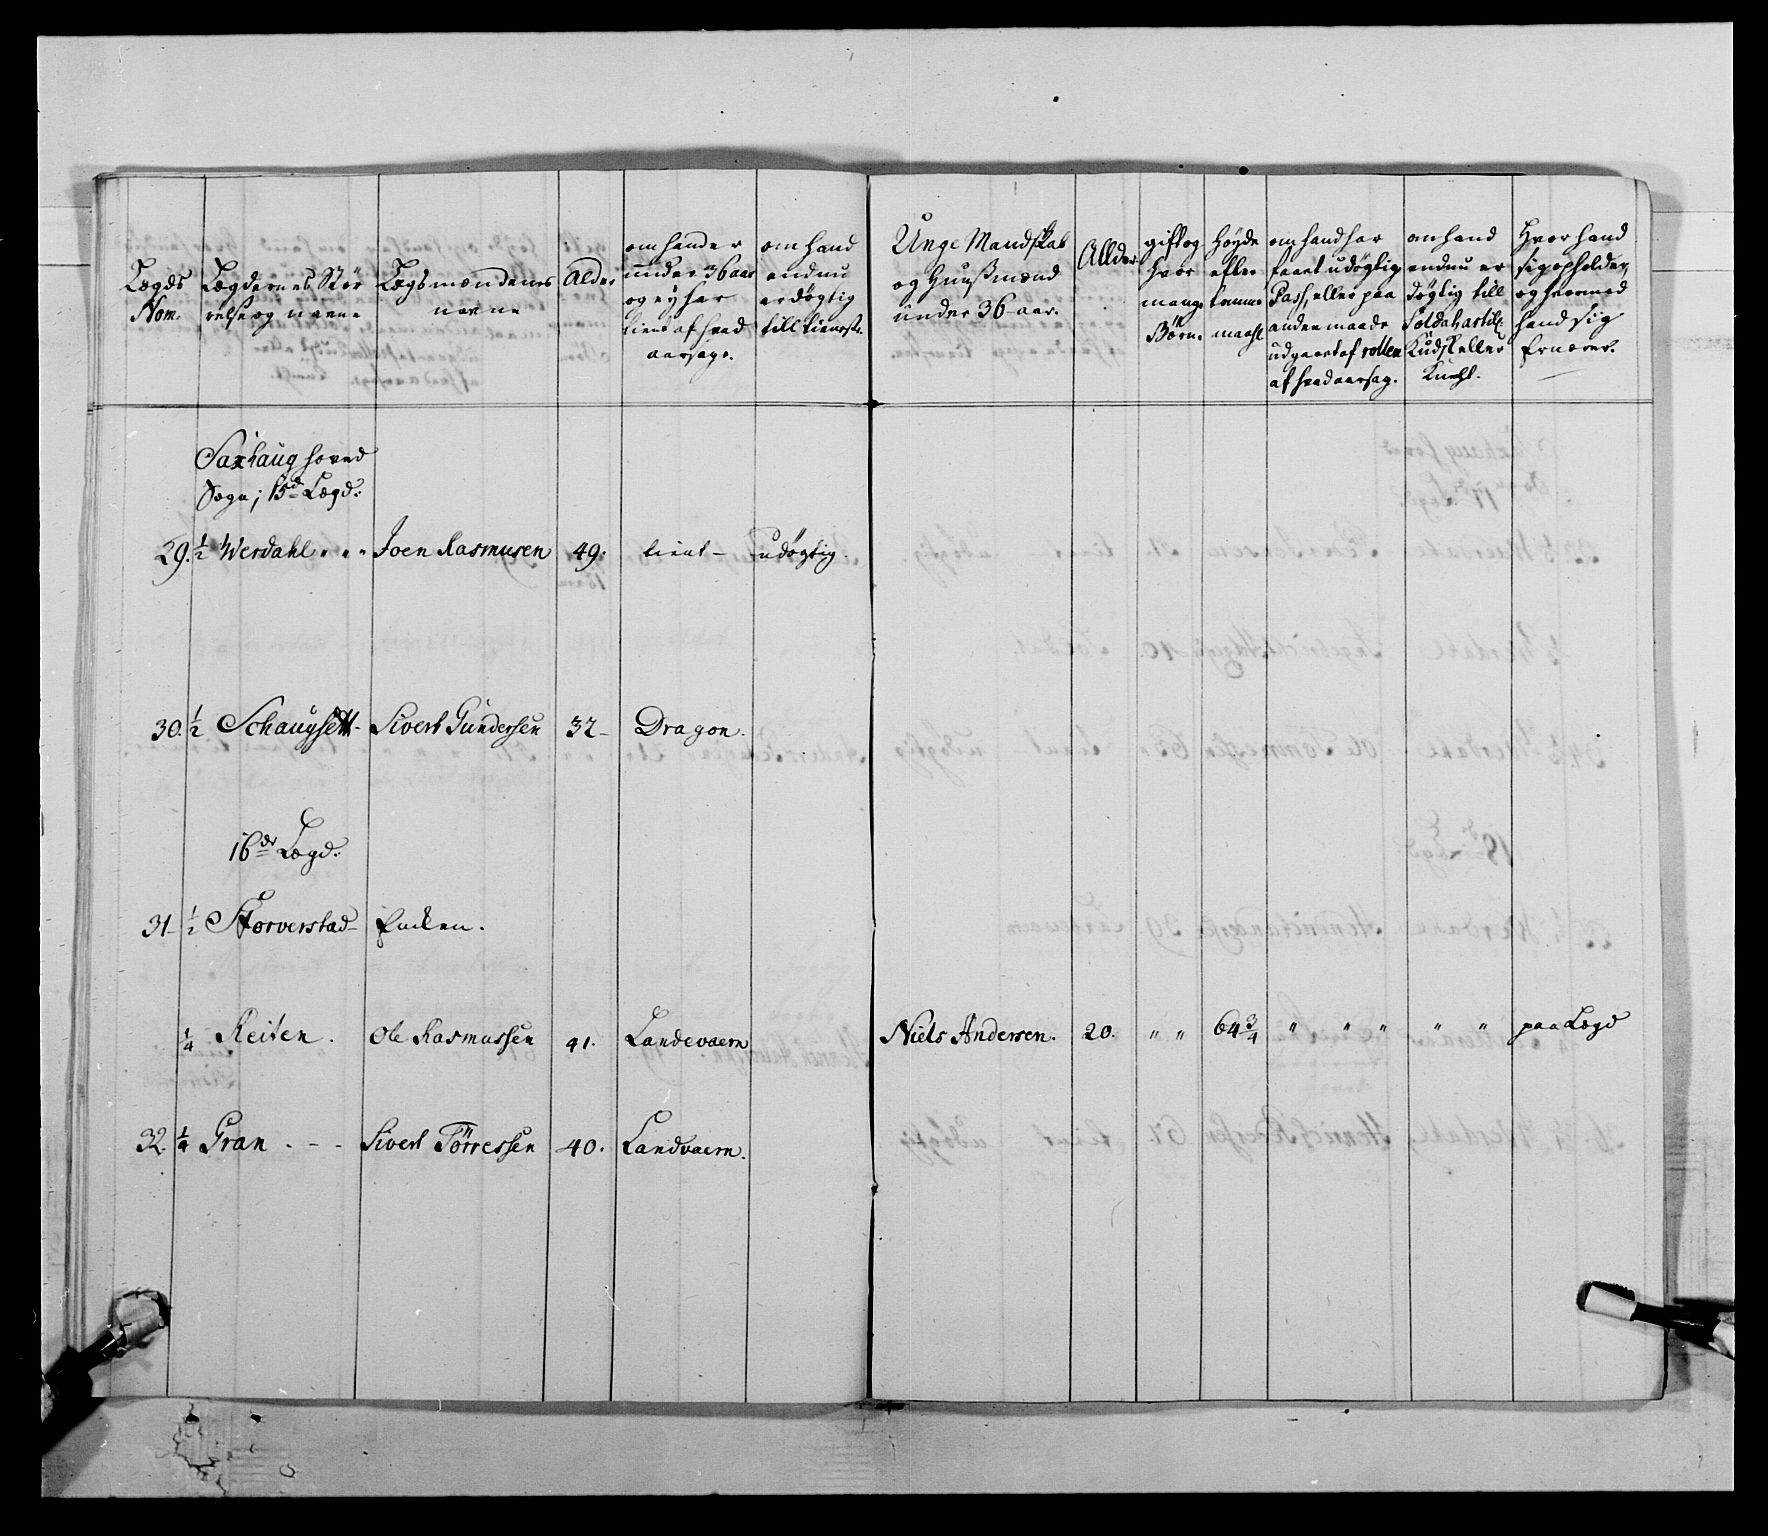 Lægds
Nom.
Lægdernes Stör
relse og navne
Lægsmændenes
navne
Alder
om hand er
under 36 aar
og ey har
tient af hvad
aarsage.
om hand
endnu
er døgtig
till tieneste.
Unge Mandskab
og Huusmænd
under 36 aar.
Allder
gift og
hvor
mange
Børn.
Høyde
efter
tomme
maahl
om hand har
faaet udøgtig
Pass, eller paa
anden maade
udgaaet af rollen
af hvad aarsag.
om hand
endnu er
døgtig till
Soldat artil.
Kudsk eller
Knegt.
Hvor hand
sig opholder,
og hvormed
hand sig
ernærer.
Saxhaug hoved
Sogn; 15d Lægd:
29. ½ Werdahl " " " Joen Rasmusen 49. tient - udøgtig.
30. ½ Schaugsett - Sivert Gundersen 32 - Dragon.
16de Lægd:
31 - ½ Storverstad - Encken.
¼ Reiten. Ole Rasmussen 41. Landevaern Niels Andersen. 20. " " 64¾ " " " " " paa Lægd
32. ¼ Gran . - - Sivert Törressen 40. Landvaern.